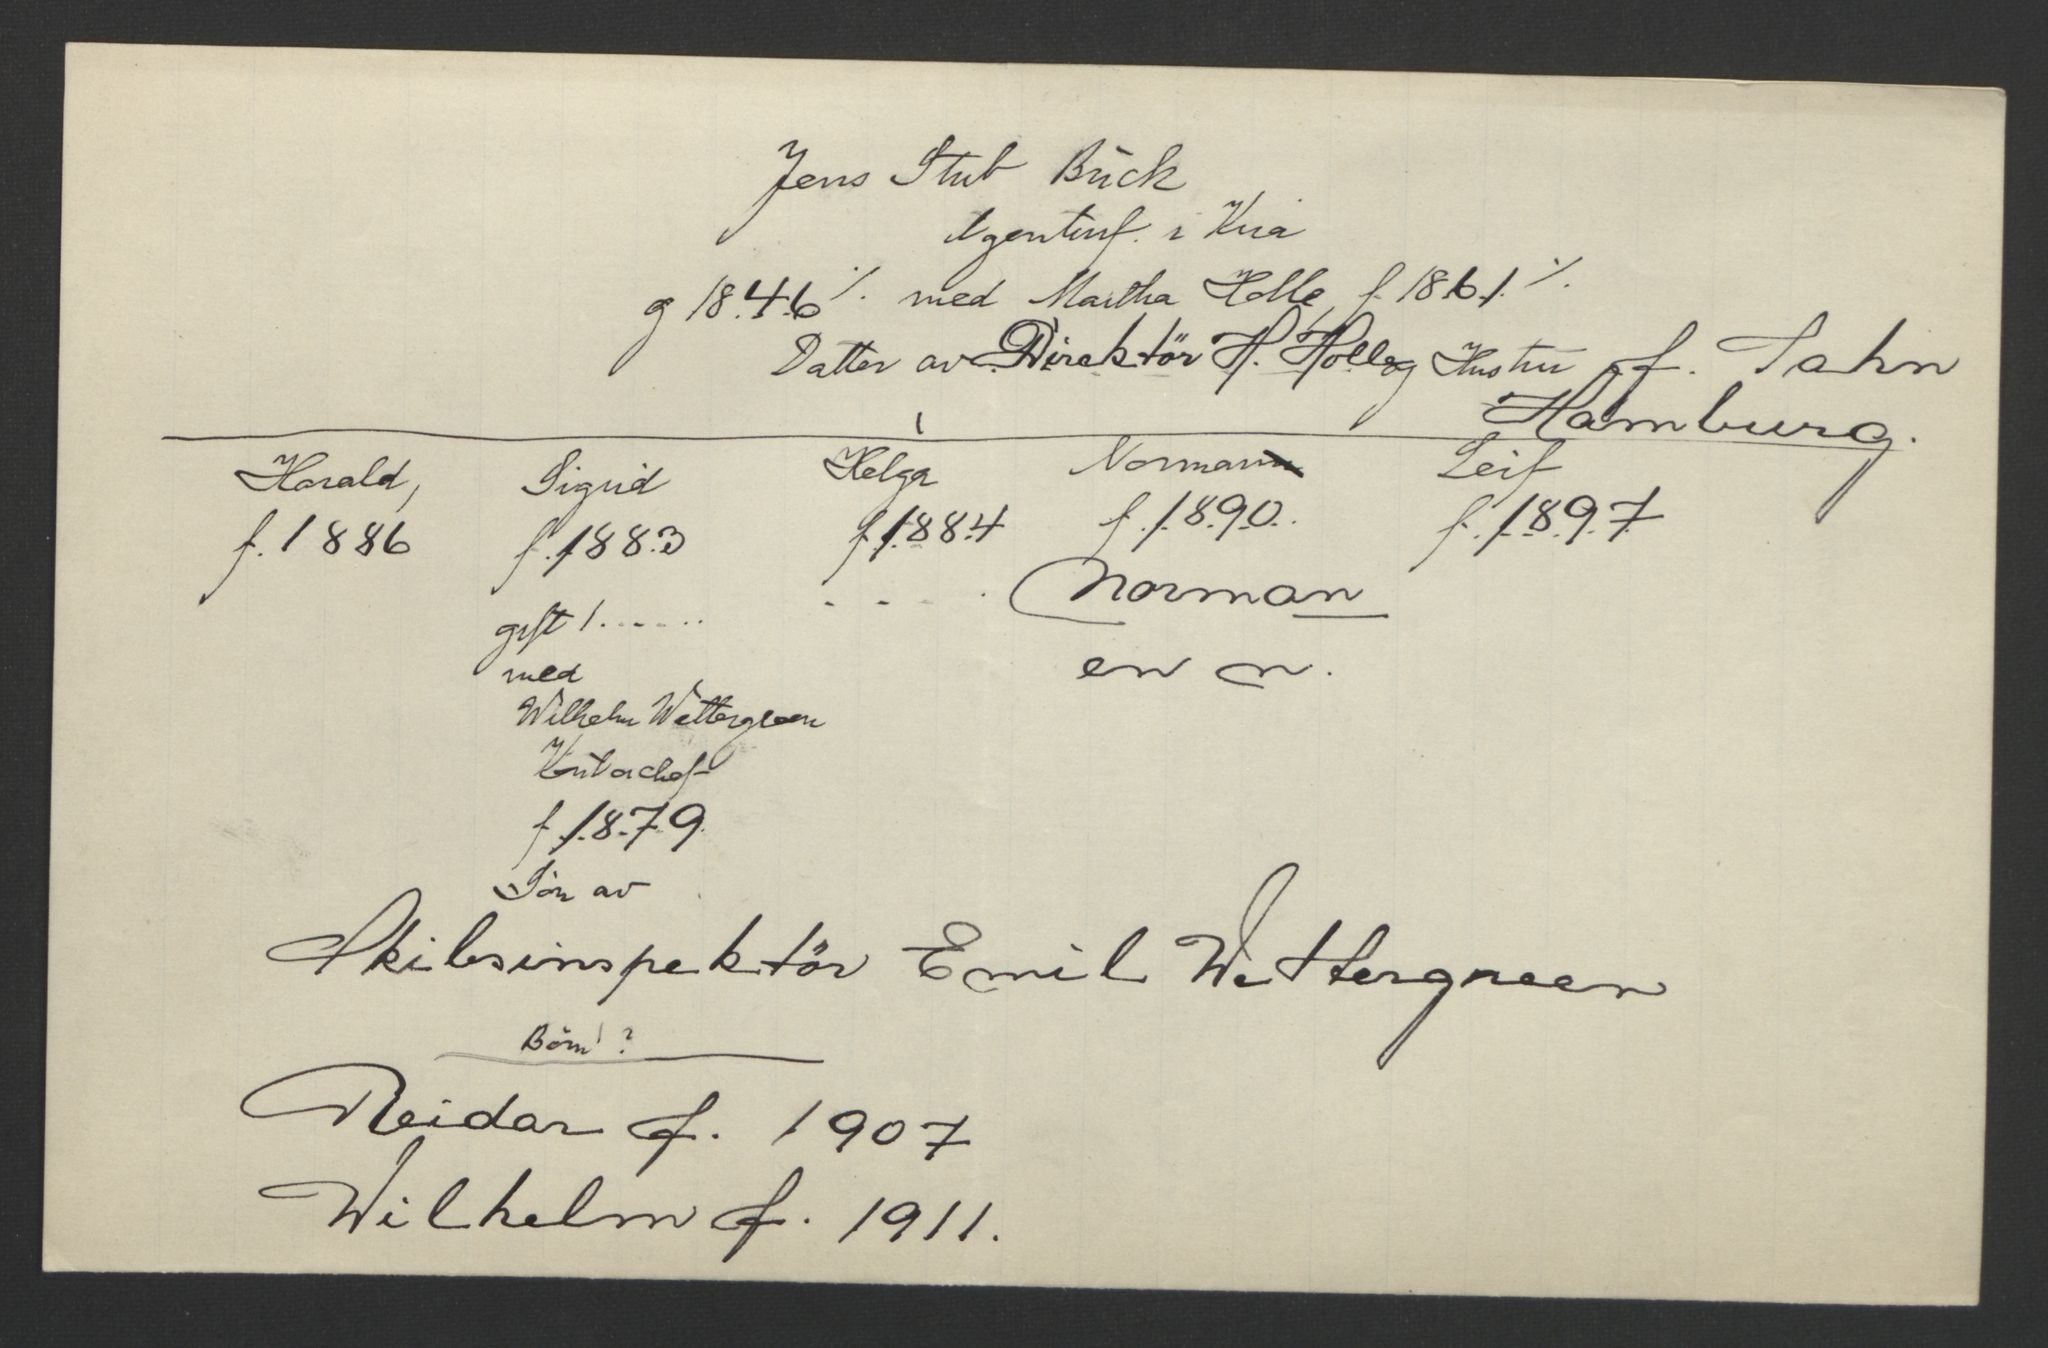 Jens Stub Bück
Agenturf. i Kria
g 1846 ./. med Martha Holle, f. 1861. ./.
Datter av Direktör H. Holle og Hustru f. Jahn
Hamburg.
Harald, Sigrid Helga Normann Leif
f. 1886 f. 1883 f. 1884 f. 1890. f. 1897
gift 1...... - - - . Norman
med en n.
Wilhelm Wettergreen
Kontorchef
f. 1879.
Sön av
Skibsinspektör Emil Wettergreen
Börn ?
Reidar f. 1907
Wilhelm f. 1911.